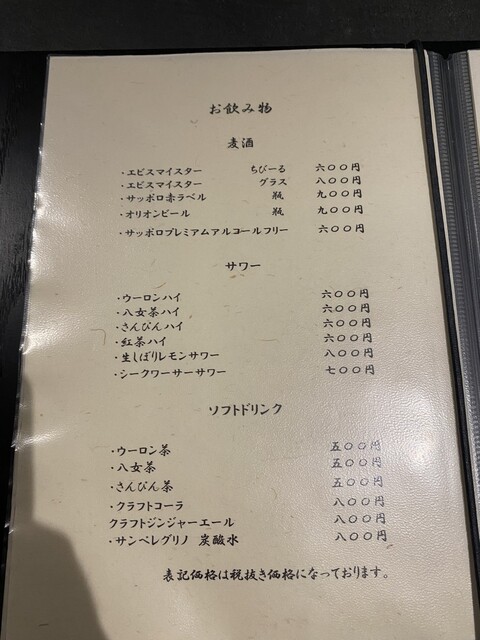 お飲み物
麦酒
・エビスマイスター ちびーる 六〇〇円
・エビスマイスター グラス 八〇〇円
・サッポロ赤ラベル 瓶 九〇〇円
・オリオンビール 瓶 九〇〇円
・サッポロプレミアムアルコールフリー 六〇〇円
サワー
・ウーロンハイ 六〇〇円
・八女茶ハイ 六〇〇円
・さんぴんハイ 六〇〇円
・紅茶ハイ 六〇〇円
・生しぼりレモンサワー 八〇〇円
・シークワーサーサワー 七〇〇円
ソフトドリンク
・ウーロン茶 五〇〇円
・八女茶 五〇〇円
・さんぴん茶 五〇〇円
・クラフトコーラ 八〇〇円
クラフトジンジャーエール 八〇〇円
・サンペレグリノ 炭酸水 八〇〇円
表記価格は税抜き価格になっております。